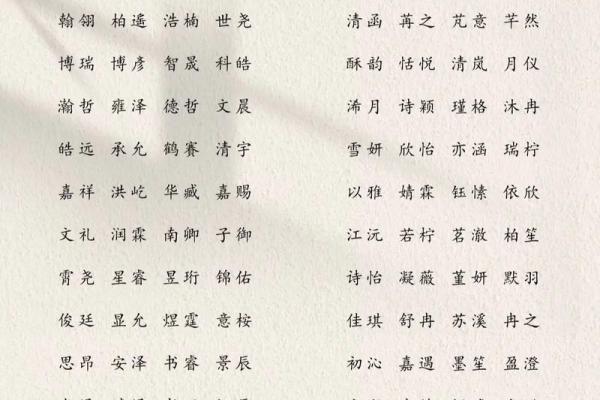 翰翎 柏遥 浩楠 世尧 清函 苒之 芃意 芊然
博瑞 博彦 智晟 科皓 酥韵 恬悦 清岚 月仪
瀚哲 雍泽 德哲 文晨 浠月 诗颖 瑾格 沐冉
皓远 承允 鹤赛 清宇 雪妍 欣怡 亦涵 瑞柠
嘉祥 洪屹 华臧 嘉赐 以雅 婧霖 钰愫 依欣
文礼 润霖 南卿 子御 江沅 若柠 茗澈 柏笙
霄尧 星睿 昱珩 锦佑 诗怡 凝薇 董妍 默羽
俊廷 显允 煜霆 意桉 佳琪 舒冉 苏溪 冉之
思昂 安泽 书睿 景辰 初沁 嘉遇 墨笙 盈澄